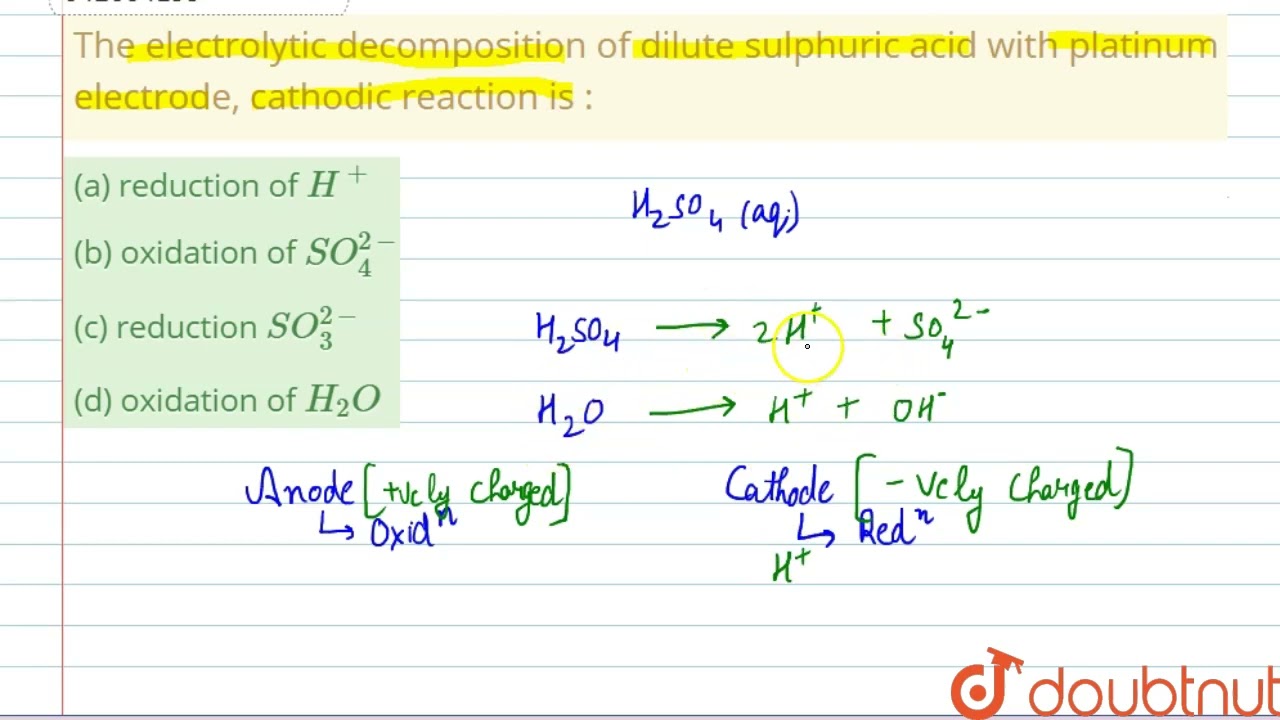 The electrolytic decomposition of dilute sulphuric acid with platinum
electrode, cathodic reaction is :
(a) reduction of H⁺
(b) oxidation of SO₄²⁻
(c) reduction SO₃²⁻
(d) oxidation of H₂O
H₂SO₄ (aq)
H₂SO₄ → 2H⁺ + SO₄²⁻
H₂O → H⁺ + OH⁻
Anode [+vely charged]
↳ Oxidⁿ
Cathode [-vely charged]
↳ Redⁿ
H⁺
doubtnut